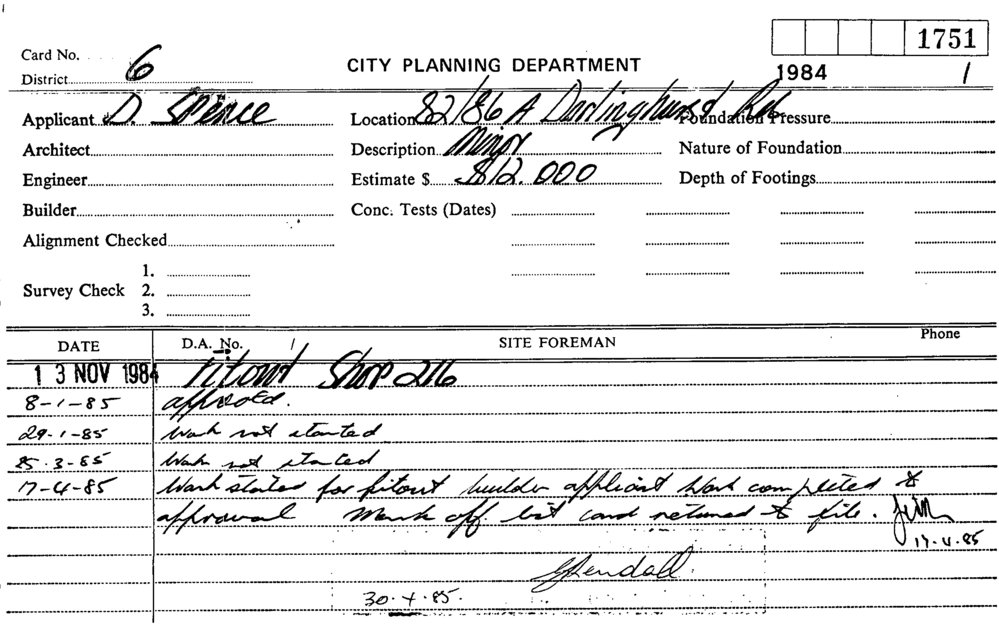 1751
Card No.
District 6
CITY PLANNING DEPARTMENT
1984 1
Applicant D. Spence
Location 82/86 A Darlinghurst Rd
Foundation Pressure
Architect
Description Minor
Nature of Foundation
Engineer
Estimate $ $12.000
Depth of Footings
Builder
Conc. Tests (Dates)
Alignment Checked
1.
Survey Check 2.
3.
DATE D.A. No. / SITE FOREMAN Phone
13 NOV 1984 Fitout Shop 216
8-1-85 approved.
29-1-85 Work not started
25.3-85 Work not started
17-4-85 Work stated for fitout builder applicant Work completed to
approval Mark off list card returned to file.
17-4.85
30.4.85.